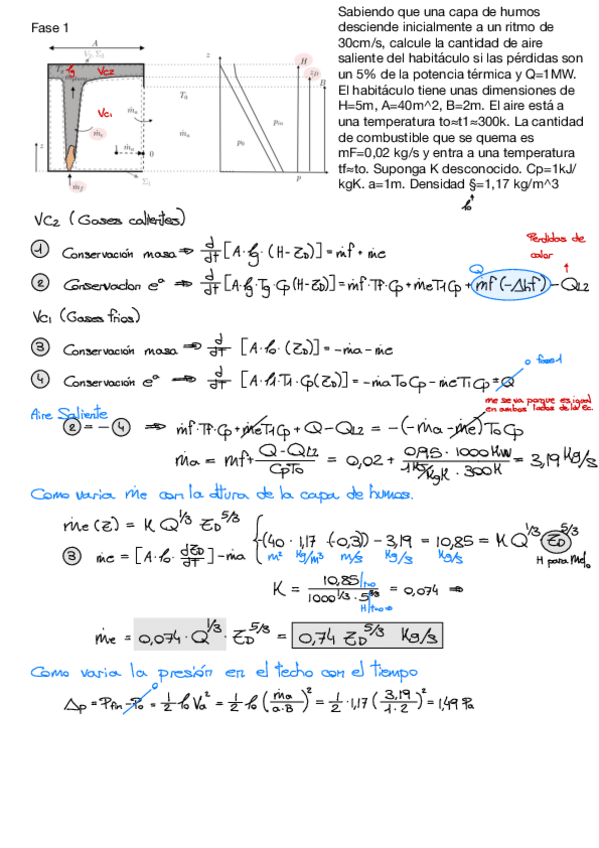 Fase 1
Sabiendo que una capa de humos
desciende inicialmente a un ritmo de
30cm/s, calcule la cantidad de aire
saliente del habitáculo si las pérdidas son
un 5% de la potencia térmica y Q=1MW.
El habitáculo tiene unas dimensiones de
H=5m, A=40m^2, B=2m. El aire está a
una temperatura to≈t1≈300k. La cantidad
de combustible que se quema es
mF=0,02 kg/s y entra a una temperatura
tf≈to. Suponga K desconocido. Cp=1kJ/
kgK. a=1m. Densidad §=1,17 kg/m^3
ρo
A
VC2
VC1
z
H
T0
ṁa
ṁe
ṁf
Σ1
p0
pm
p
VC2 (Gases calientes)
1 Conservación masa ⇒ d/dT [A·ρg·(H-ZD)] = ṁf + ṁe
Perdidas de
calor
2 Conservación eª ⇒ d/dT [A·ρg·Tg·Cp(H-ZD)] = ṁf·TF·Cp + ṁeT1Cp + ṁf(-Δhf) - QL2
Q
VC1 (Gases fríos)
3 Conservación masa ⇒ d/dT [A·ρo·(ZD)] = -ṁa - ṁe
4 Conservación eª ⇒ d/dT [A·ρ1·T1·Cp(ZD)] = -ṁaToCp - ṁeT1Cp ± Q
0 fase 1
me se va porque es igual
en ambos lados de la ec.
Aire Saliente
2 = - 4 ⇒ ṁf·TF·Cp + ṁeT1Cp + Q - QL2 = -(-ṁa - ṁe)ToCp
ṁa = mf + (Q - QL2)/(CpTo) = 0,02 + (0,95 · 1000 KW)/(1 KJ/KgK · 300K) = 3,19 Kg/s
Como varia ṁe con la altura de la capa de humos.
ṁe(z) = K Q^1/3 ZD^5/3
3 ṁe = [A·ρo· dZD/dT] - ṁa
-(40 · 1,17 (-0,3)) - 3,19 = 10,85 = K Q^1/3 ZD^5/3
m² Kg/m³ m/s Kg/s Kg/s
H para me|o
K = 10,85|t=0 / (1000^1/3 · 5^5/3) = 0,074 ⇒
H|t=0
ṁe = 0,074 · Q^1/3 · ZD^5/3 = 0,74 ZD^5/3 Kg/s
Como varia la presión en el techo con el tiempo
Δp = Pfin - Po = 1/2 ρo Va² = 1/2 ρo (ṁa/(a·B))² = 1/2 · 1,17 (3,19/(1·2))² = 1,49 Pa